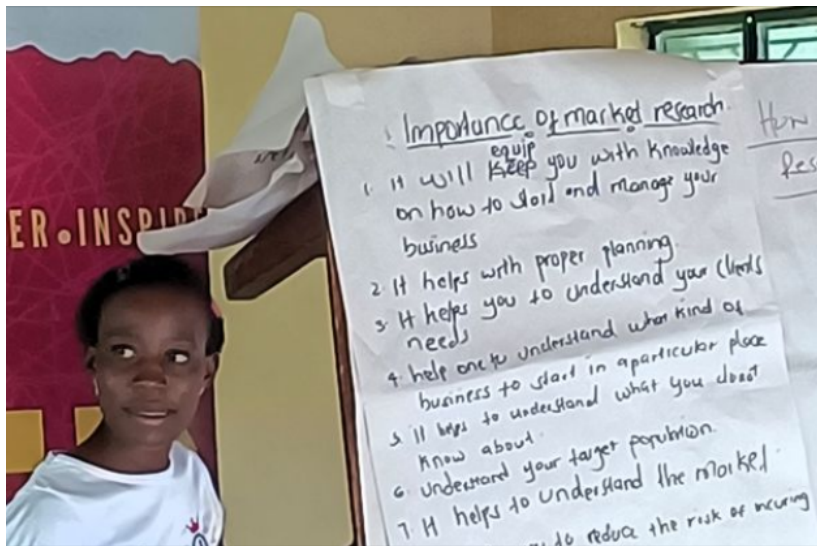 ER.INSPIRE
Importance of market research.
equip
1. It will keep you with knowledge
on how to start and manage your
business
2. It helps with proper planning.
3. It helps you to understand your clients
needs
4. help one to understand what kind of
business to start in a particular place
5. It helps to understand what you donot
know about.
6. understand your target population.
7. It helps to understand the market.
to reduce the risk of incuring
How
Res